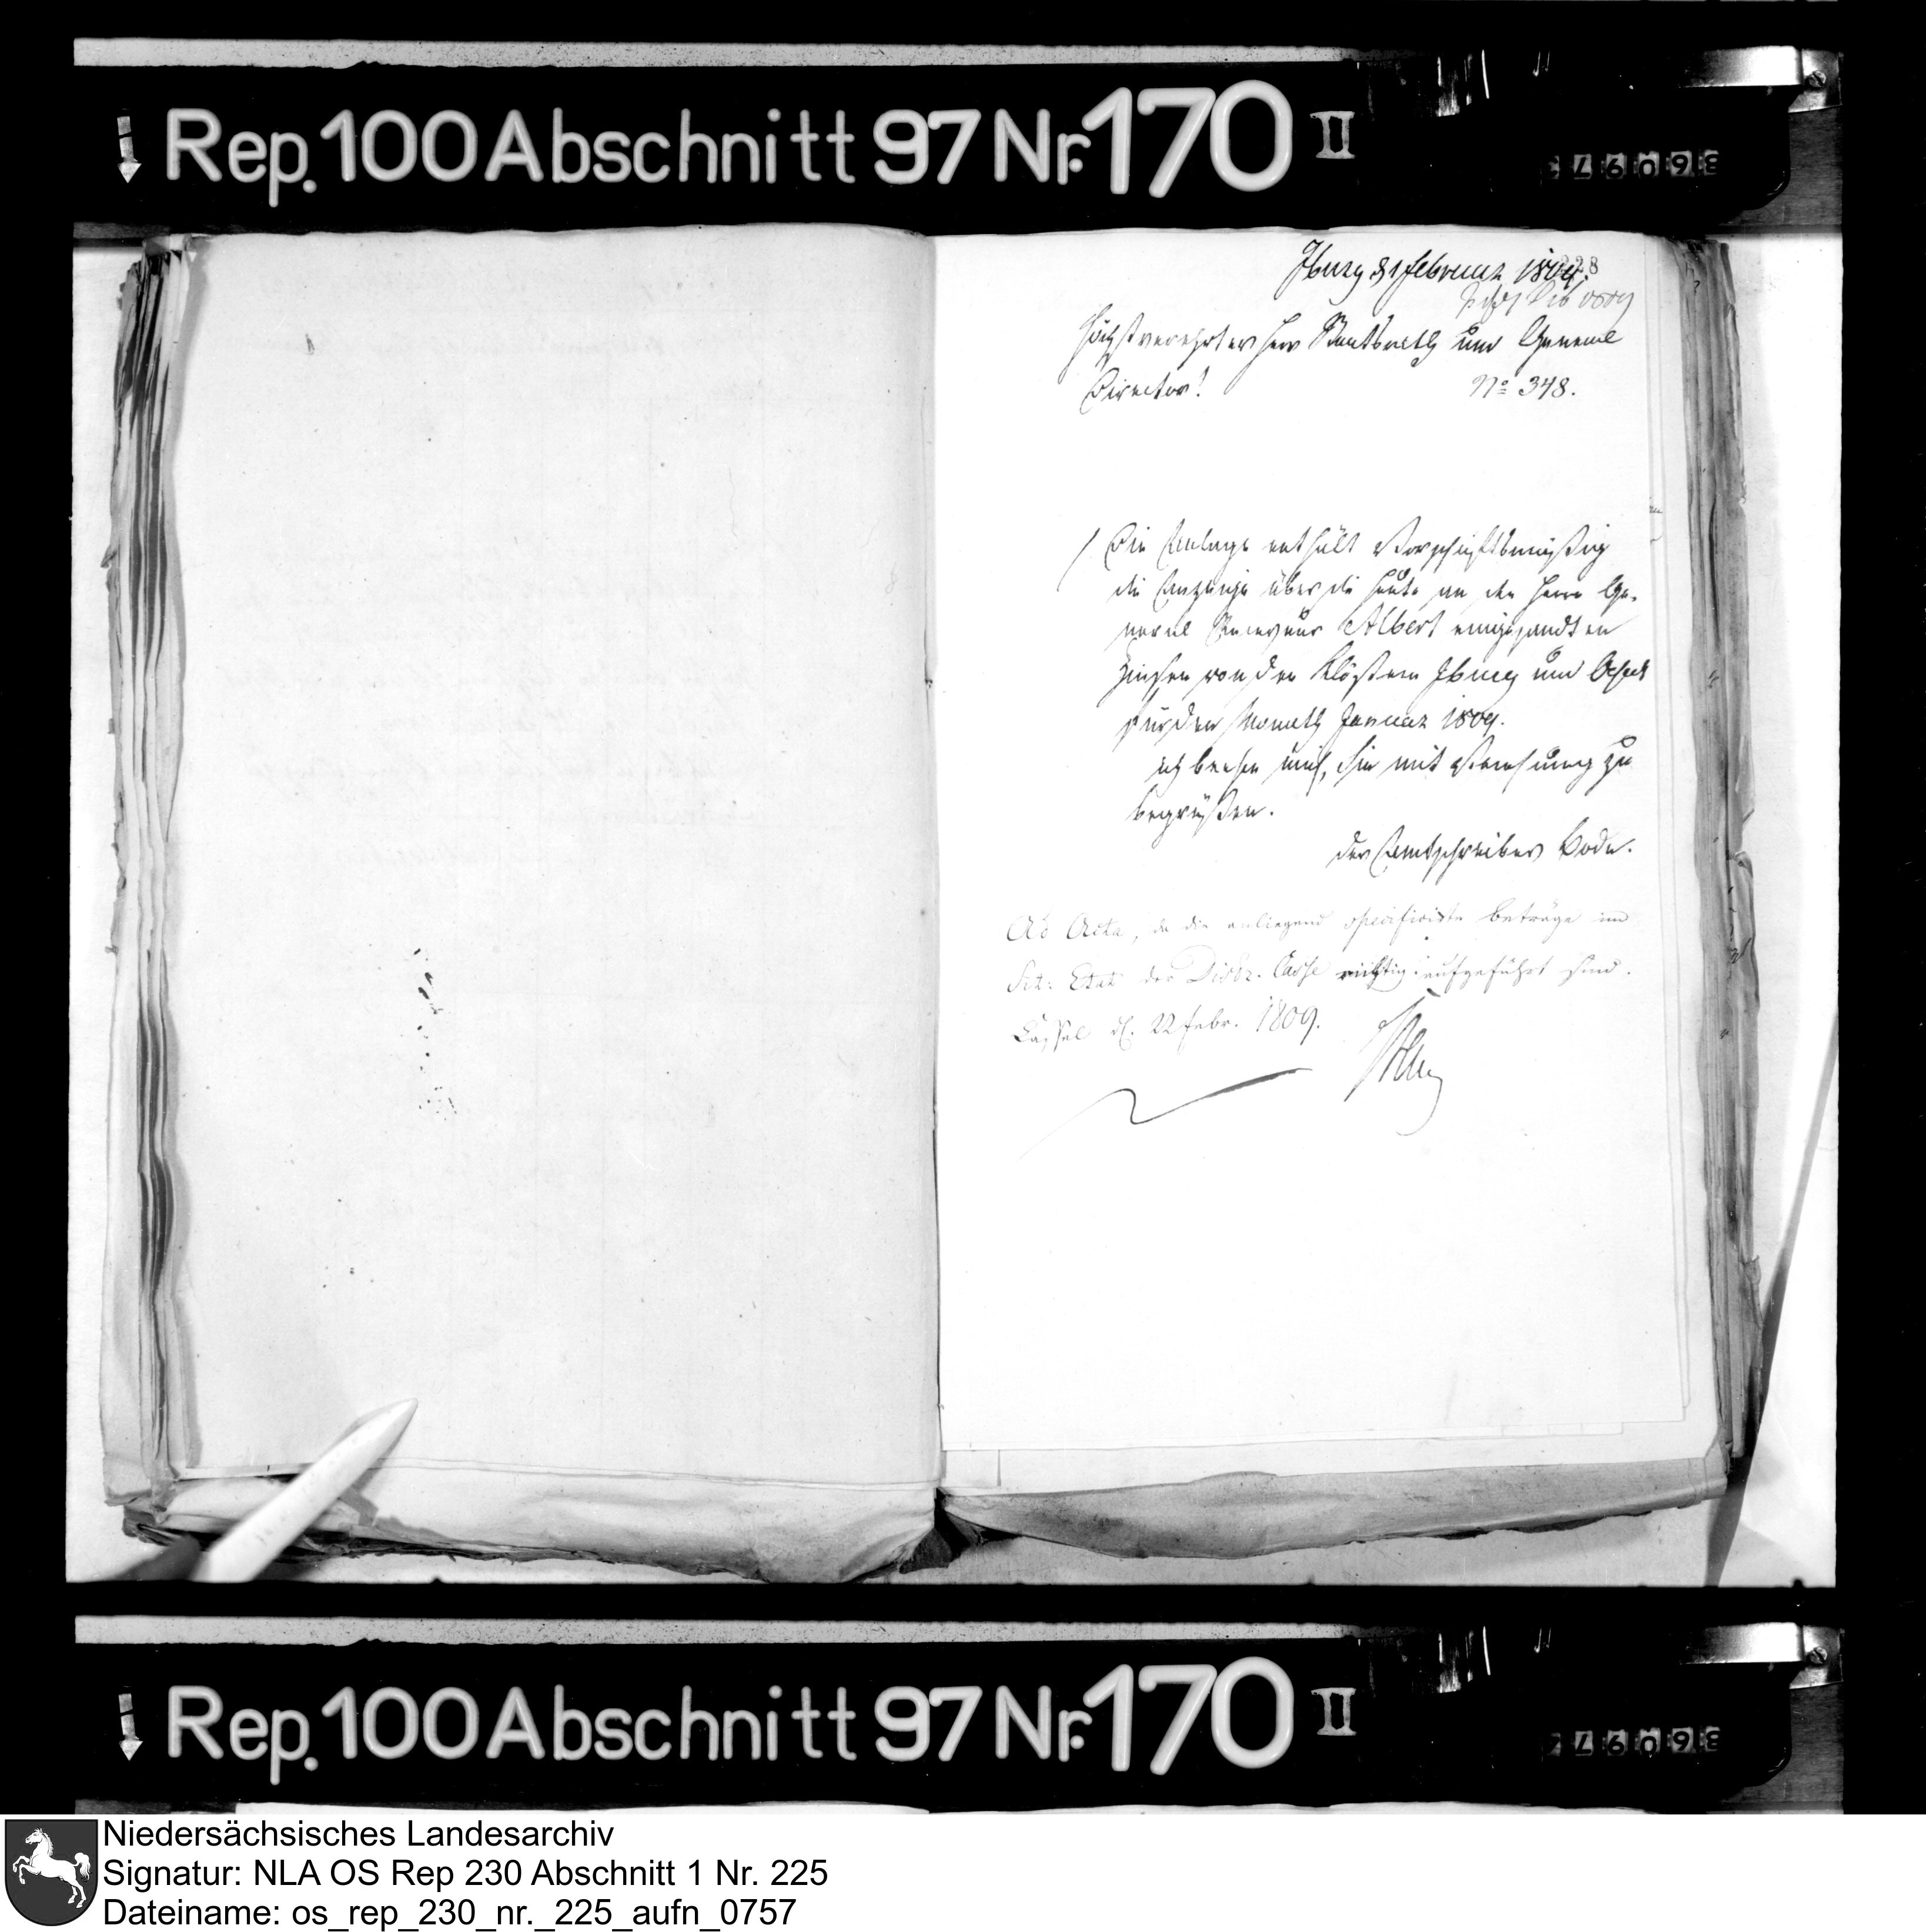 Rep. 100 Abschnitt 97 Nr. 170 II
360973
228
Iburg d Februar 1809.
Höchstverehrter Herr Staatsrath und General
Director!
No 348.
Die Anlage enthält Vorschriftsmäßig
die Anzeige über die heute an den Herrn Ge-
neral Receveur Albert eingesandten
Zinsen von den Klöstern Iburg und Oesede
für den Monath Januar 1809.
ich beehre mich, Sie mit Verehrung zu
begrüßen.
der Amtschreiber Bode.
Ad Acta, da die anliegend specificirte Beträge im
Sit: Etat der Distr. Casse richtig aufgeführt sind.
Cassel d. 22 Febr. 1809.
Rep. 100 Abschnitt 97 Nr. 170 II
36097
Niedersächsisches Landesarchiv
Signatur: NLA OS Rep 230 Abschnitt 1 Nr. 225
Dateiname: os_rep_230_nr._225_aufn_0757